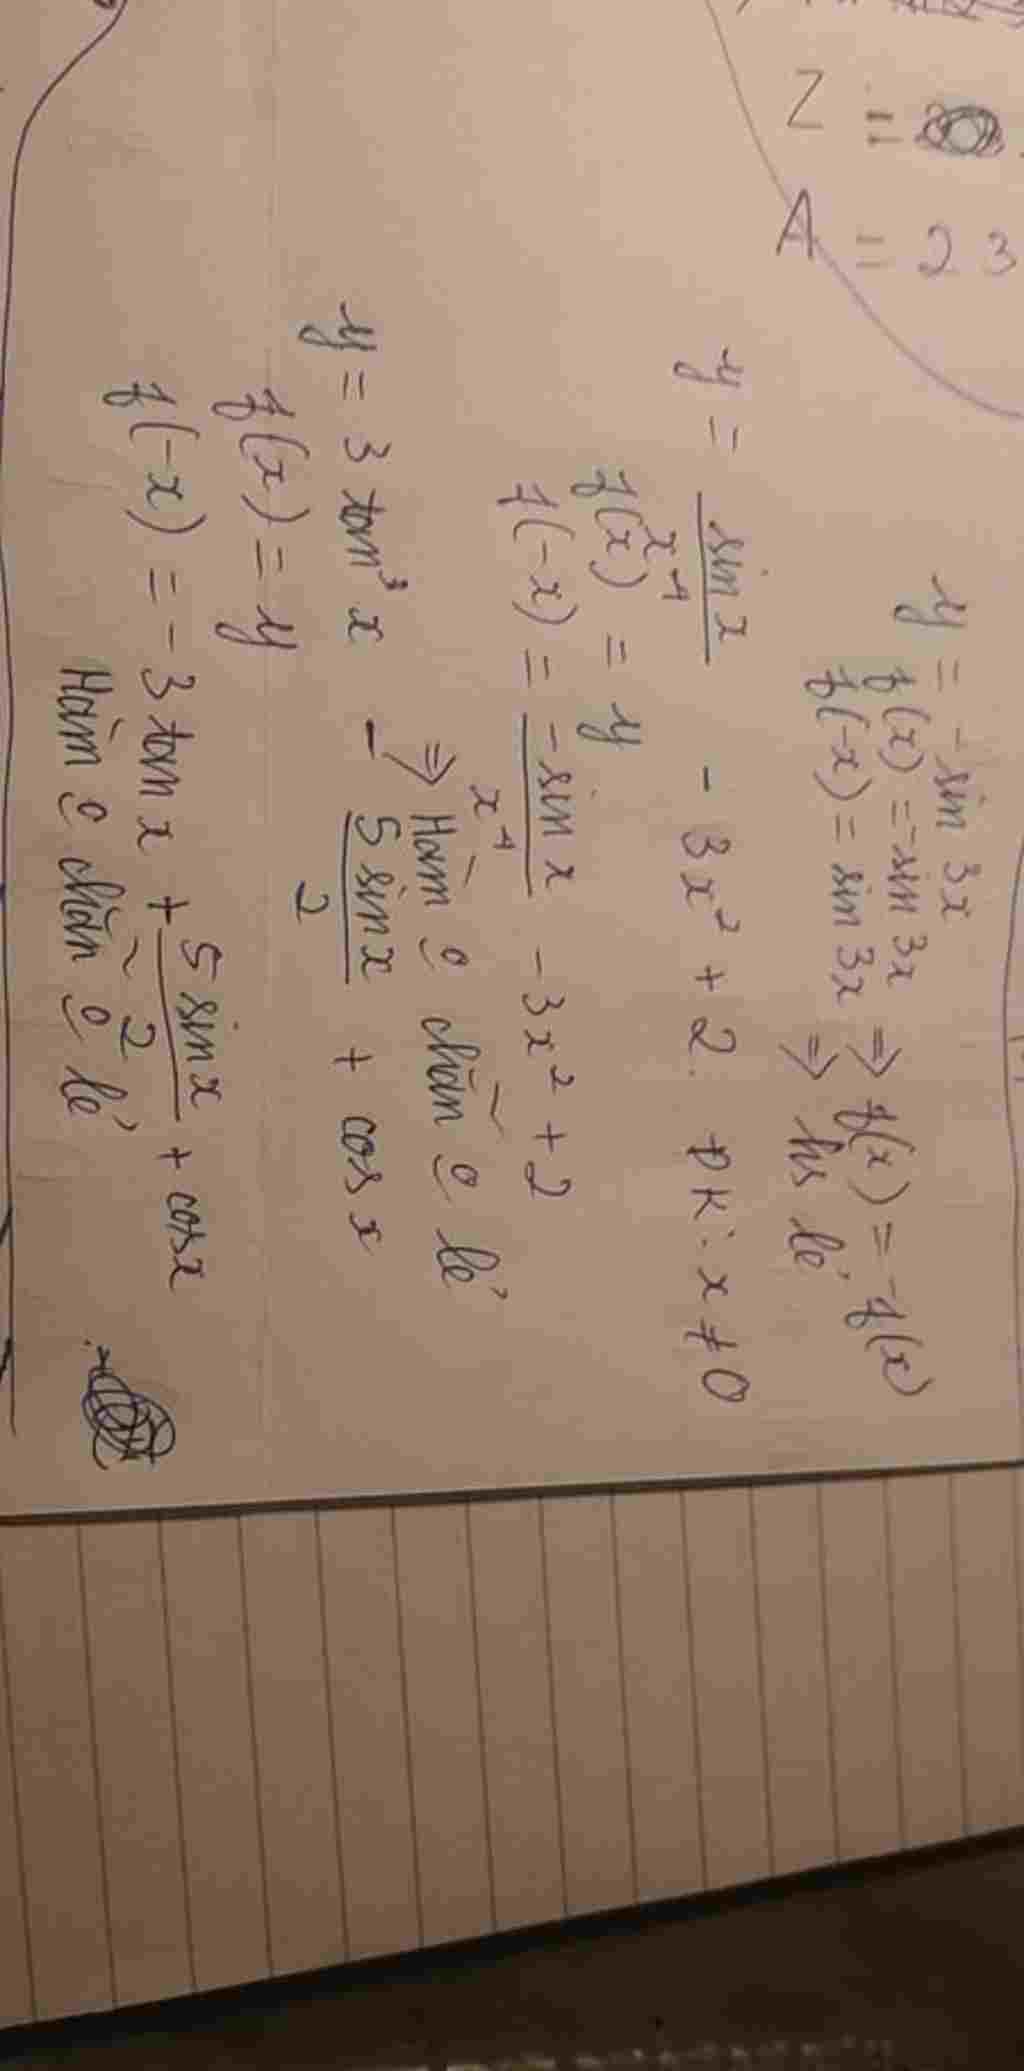 Z =
A = 23
y = -sin 3x
f(x) = -sin 3x ⇒ f(x) = -f(x)
f(-x) = sin 3x ⇒ hs lẻ
y = \frac{sin x}{x^4} - 3x² + 2. ĐK: x ≠ 0
f(x) = y
f(-x) = \frac{-sin x}{x^4} - 3x² + 2
⇒ Hàm o chẵn o lẻ
y = 3 tan³ x - \frac{5 sin x}{2} + cos x
f(x) = y
f(-x) = -3 tan x + \frac{5 sin x}{2} + cos x
Hàm o chẵn o lẻ